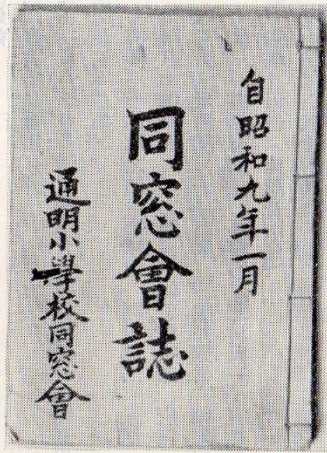 自昭和九年一月
同窓會誌
通明小學校同窓會